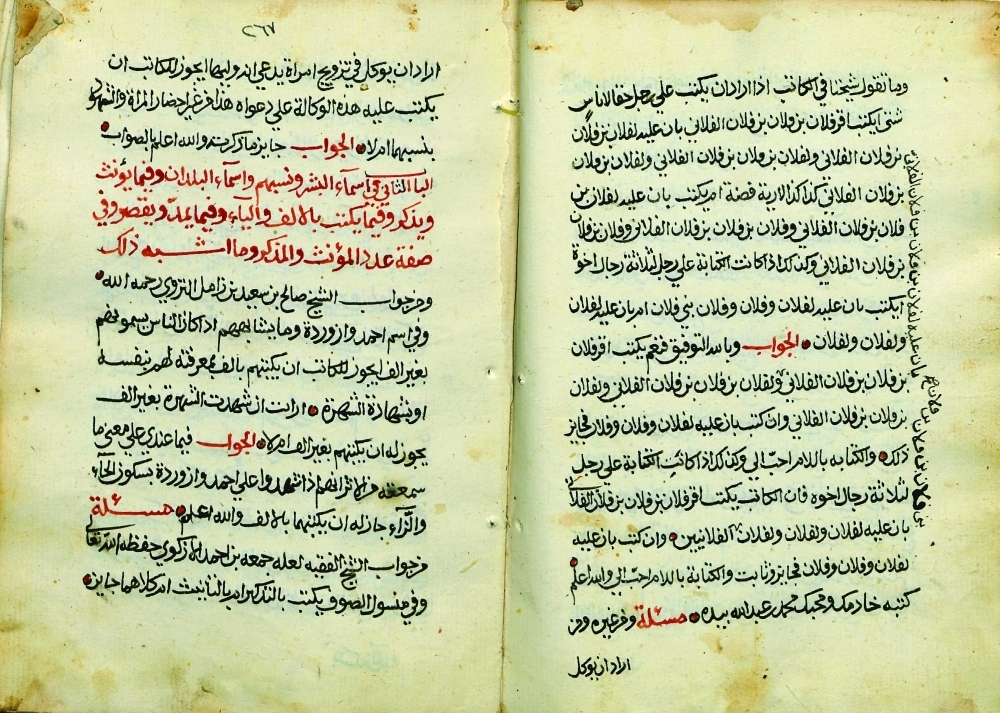 وما تقول شيخنا في الكاتب اذا اراد ان يكتب على رجل حقا لاناس
شتى ايكتب اقر فلان بن فلان بن فلان الفلاني بان عليه لفلان بن فلان
بن فلان الفلاني ولفلان بن فلان بن فلان الفلاني ولفلان بن فلان
بن فلان الفلاني كذا كذا لارية فضة ام يكتب بان عليه لفلان بن
فلان بن فلان الفلاني وفلان بن فلان بن فلان الفلاني وفلان بن فلان
بن فلان الفلاني وكذلك اذا كانت الكتابة على رجل لثلاثة رجال اخوة
ايكتب بان عليه لفلان وفلان وفلان بني فلان ام بان عليه لفلان
ولفلان ولفلان الجواب وبالله التوفيق فنعم يكتب اقر فلان
بن فلان بن فلان الفلاني ولفلان بن فلان بن فلان الفلاني ولفلان
بن فلان بن فلان الفلاني وان كتب بان عليه لفلان وفلان وفلان فجايز
ذلك والكتابه باللام احب الي وكذلك اذا كانت الكتابة على رجل
لثلاثة رجال اخوه فان الكاتب يكتب اقر فلان بن فلان بن فلان الفلاني
بان عليه لفلان ولفلان ولفلان الفلانيين وان كتب بان عليه
لفلان وفلان وفلان فجايز وثابت والكتابة باللام احب الي والله اعلم
كتبه خادمك ومحبك محمد بن عبدالله بيده مسئلة وفي غيره ومن
اراد ان يوكل
بان عليه لفلان بن فلان بن فلان الفلاني
فلان صح
بن فلان بن فلان
٢٦٧
اراد ان يوكل في تزويج امراة يدعي انه وليها ايجوز للكاتب ان
يكتب عليه هذه الوكالة على دعواه هذا من غير احضار المراة والشهود
بنسبهما ام لا الجواب جايز ما ذكرت والله اعلم بالصواب
الباب الثاني في اسماء البشر ونسبهم واسماء البلدان وفيما يؤنث
ويذكر وفيما يكتب بالالف والياء وفيما يمد ويقصر وفي
صفة عدد المؤنث والمذكر وما اشبه ذلك
ومن جواب الشيخ صالح بن سعيد بن زامل النزوي رحمه الله
وفي اسم احمد وازوردة وما يشابههم اذا كان الناس يسمونهم
بغير الف ايجوز للكاتب ان يكتبهم بالف بمعرفته لهم بنفسه
او بشهادة الشهرة ارايت ان شهدت الشهرة بغير الف
يجوز له ان يكتبهم بغير الف ام لا الجواب فيما عندي على معنى ما
سمعته من الاثر انهم اذا شهدوا على احمد وازوردة بسكون الحاء
والزاء جاز له ان يكتبهما بالالف والله اعلم مسئلة
من جواب الشيخ الفقيه لعله جمعه بن احمد الازكوي حفظه الله تعالى
وفي منسول الصوف يكتب بالتذكير ام بالتانيث ام كلاهما جايز